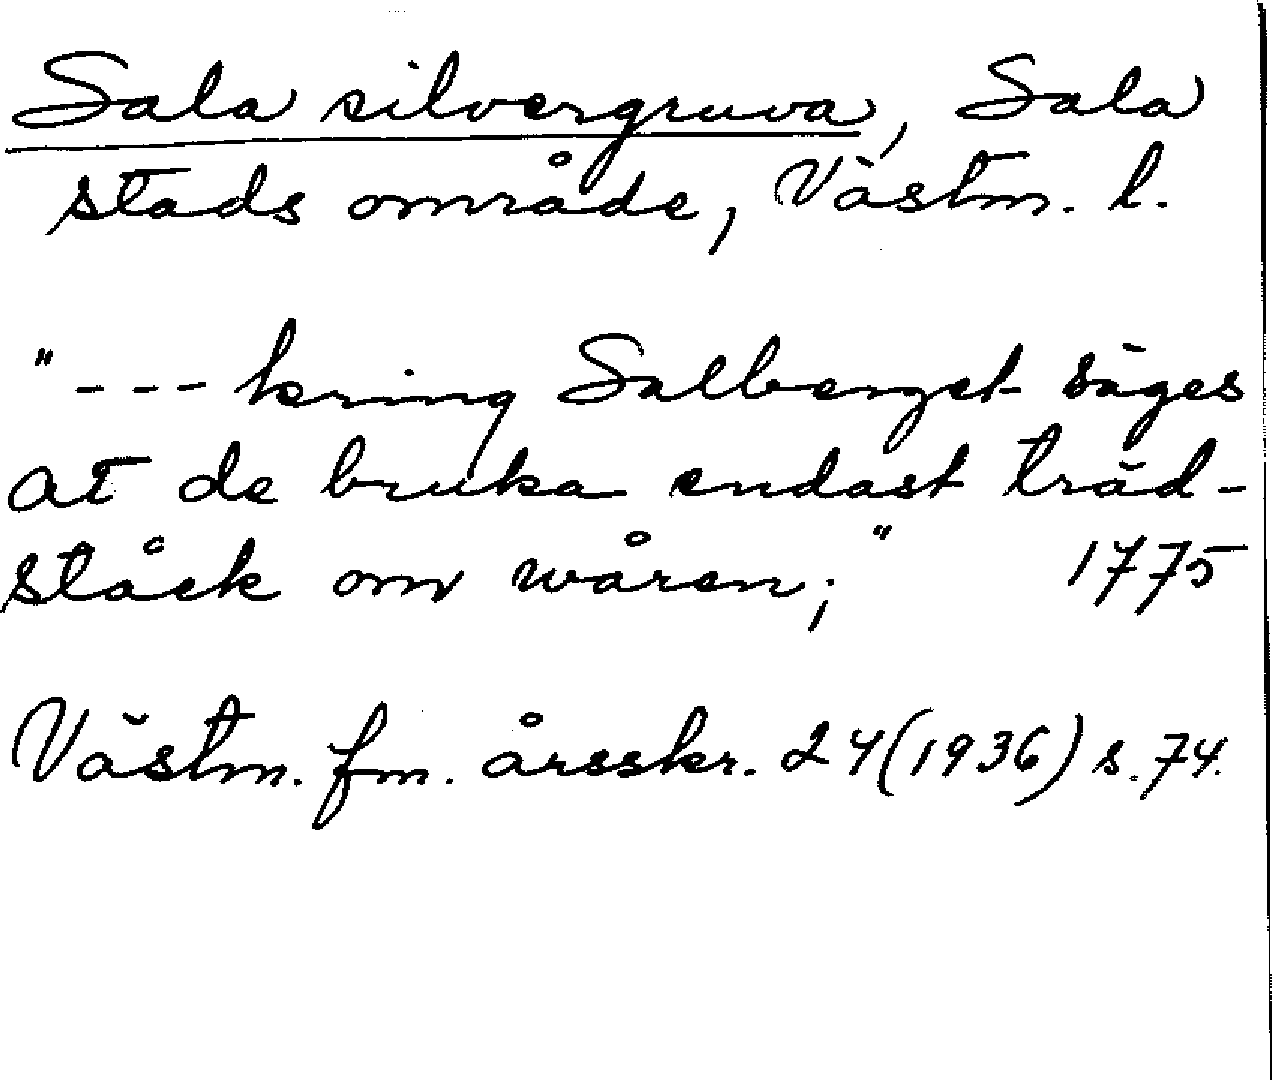 Sala silvergruva, Sala
stads område, Västm. l.
"--- kring Salberget säges
at de bruka endast träd-
ståck om wåren;" 1775
Västm. fm. årsskr. 24 (1936) s. 74.